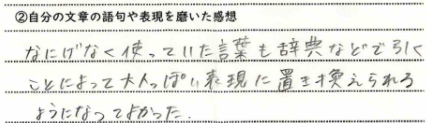 ②自分の文章の語句や表現を磨いた感想
なにげなく使っていた言葉も辞典などで引く
ことによって大人っぽい表現に置き換えられる
ようになってよかった。